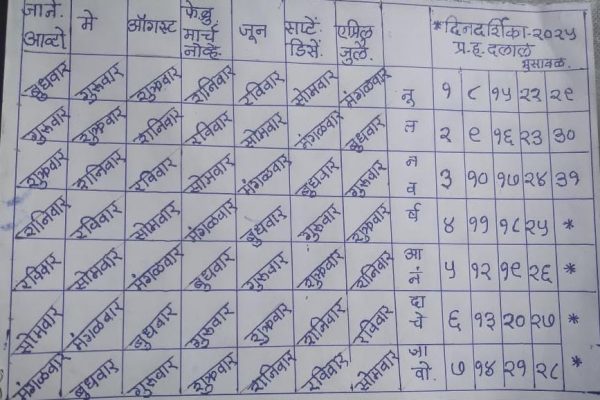 जाने. आक्टो. मे ऑगस्ट फेब्रु मार्च नोव्हें. जून सप्टें. डिसें. एप्रिल जुलै. *दिनदर्शिका-२०२५
प्र.ह.दलाल
भुसावळ.
बुधवार गुरुवार शुक्रवार शनिवार रविवार सोमवार मंगळवार नू १ ८ १५ २२ २९
गुरुवार शुक्रवार शनिवार रविवार सोमवार मंगळवार बुधवार त २ ९ १६ २३ ३०
शुक्रवार शनिवार रविवार सोमवार मंगळवार बुधवार गुरुवार न व ३ १० १७ २४ ३१
शनिवार रविवार सोमवार मंगळवार बुधवार गुरुवार शुक्रवार र्ष ४ ११ १८ २५ *
रविवार सोमवार मंगळवार बुधवार गुरुवार शुक्रवार शनिवार आ नं ५ १२ १९ २६ *
सोमवार मंगळवार बुधवार गुरुवार शुक्रवार शनिवार रविवार दा चे ६ १३ २० २७ *
मंगळवार बुधवार गुरुवार शुक्रवार शनिवार रविवार सोमवार जा वो. ७ १४ २१ २८ *